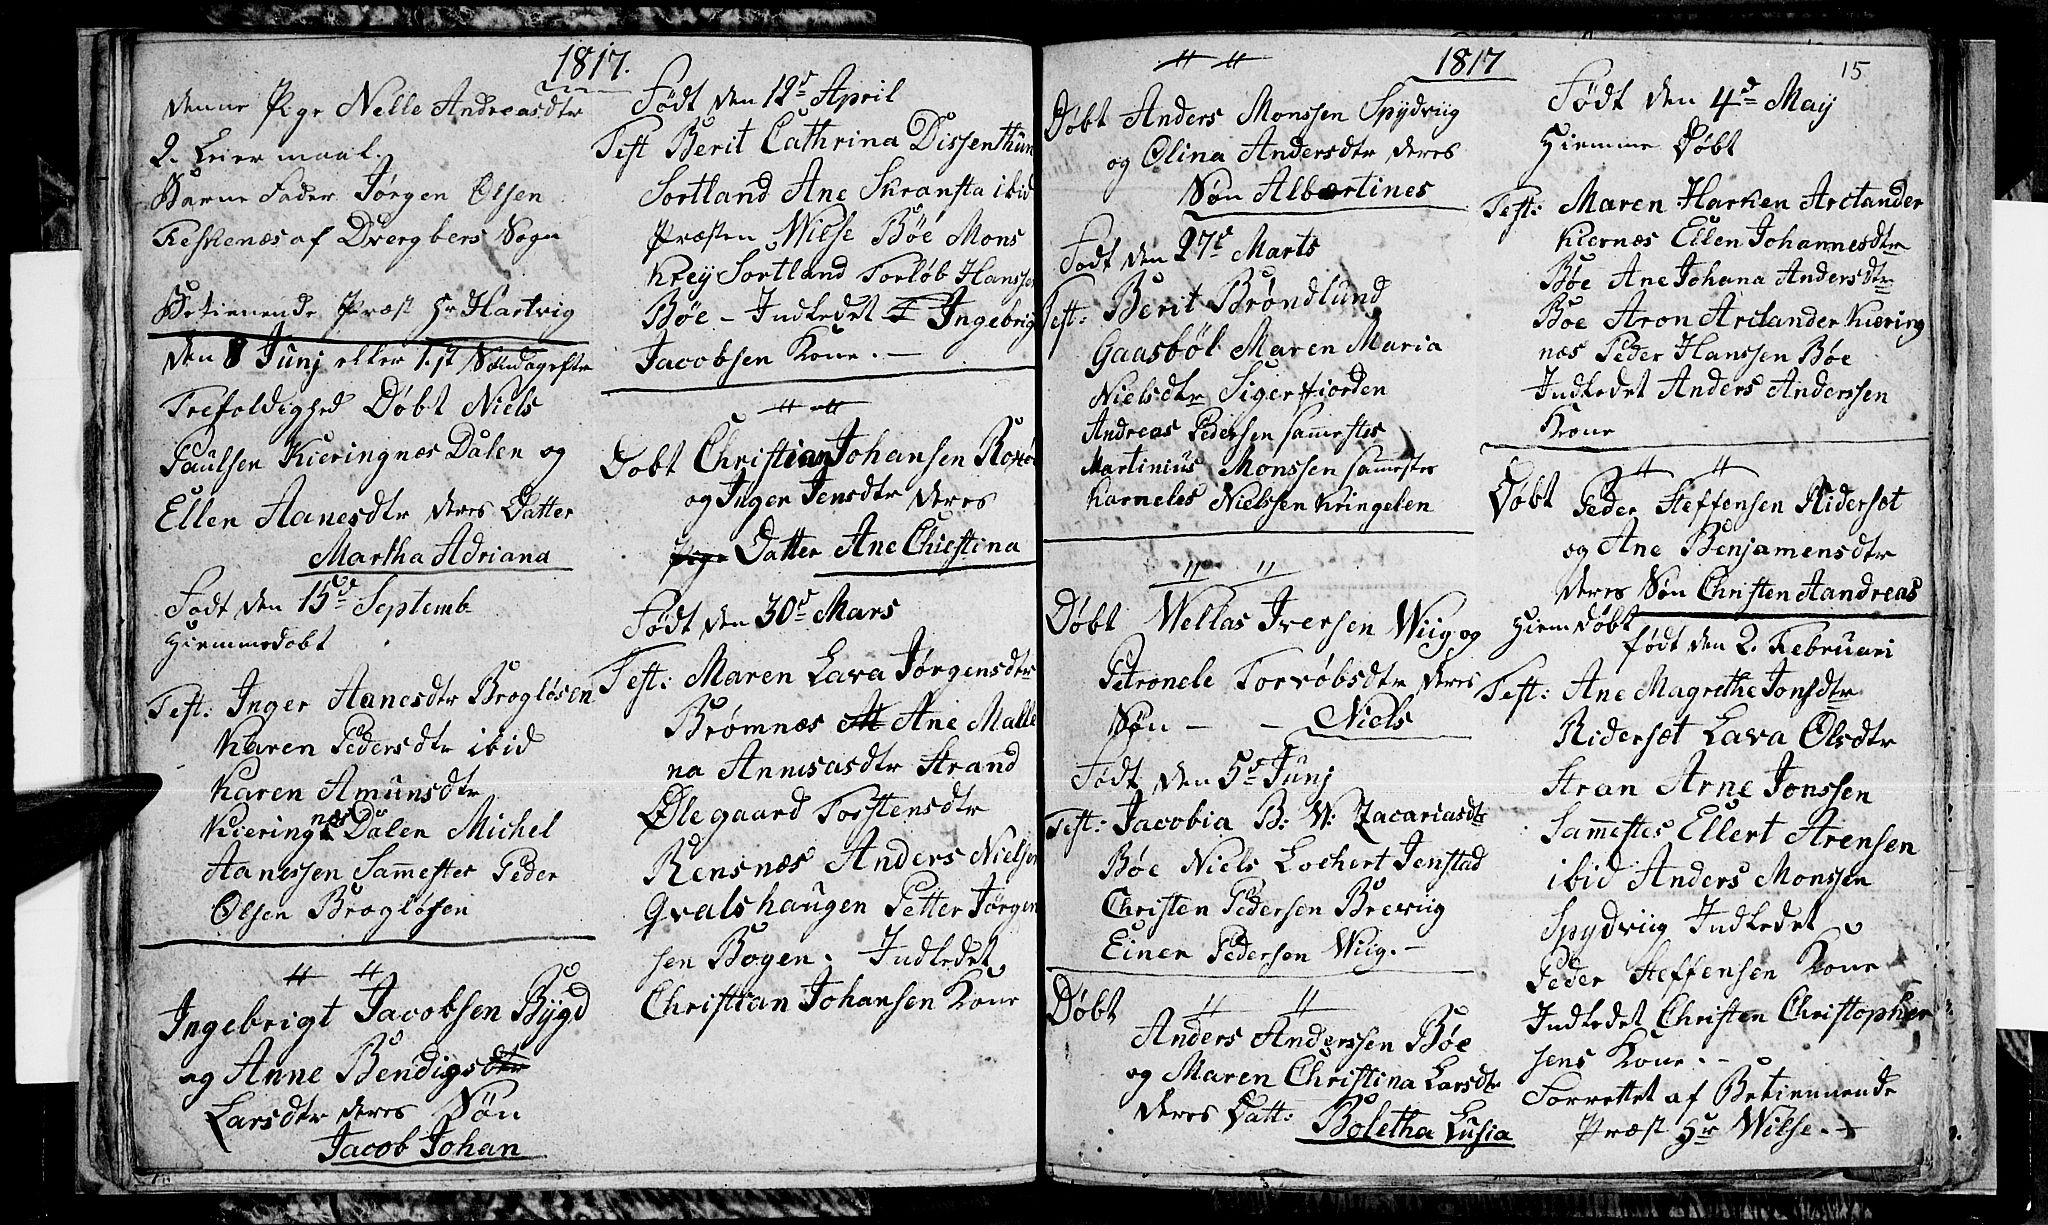 1817.
denne Pige Nelle Andreasdtr
2. Leiermaal.
Barne Fader Jørgen Olsen
Feskenæs af Dvergbers Sogn
Betienende Præst Hr Hartvig
den 8 Junj eller 1.st Søndag eftr
Trefoldighed Døbt Niels
Paulsen Kieringnæs Dalen og
Ellen Hanesdtr deres Datter
Martha Adriana
Født den 15de Septemb
Hiemmedøbt
Test: Inger Hanesdtr Brogløsen
Karen Pedersdtr ibid
Karen Amunsdtr
Kieringnes Dalen Michel
Hanessen Sammestes Peder
Olsen Brogløsen
" "
Ingebrigt Jacobsen Bÿgd
og Anne Bendigsdtr
Larsdtr deres Søn
Jacob Johan
Født den 12d April
Test Berit Cathrina Dissenthun
Sortland Ane Skransta ibid
Præsten Wilse Bøe Mons
Krey Sortland Torløb Hanssen
Bøe - Indledet I Ingebrig
Jacobsen Kone. -
" "
Døbt Christian Johansen
og Inger Jensdtr deres
Pige Datter Ane Christina
Født den 30d Mars
Test: Maren Lava Jørgensdtr
Brømnæs M Ane Malle
na Annisasdtr Strand
Ølegaard Torstensdtr
Rensnæs Anders Nielsen
Qvalshaugen Petter Jørgen
sen Bogen. Indledet
Christian Johansen Kone
" "
1817
Døbt Anders Monssen Spydviig
og Olina Andersdtr deres
Søn Albærtines
Født den 27d Marts
Test: Berit Brøndlund
Gaasbøl Maren Maria
Nielsdtr Sigerfiorden
Andreas Pedersen samestes
Martinius Monssen samestes
Karneles Nielssen Kringelen
" "
Døbt Wellas Iversen Wiig og
Petronele Torvøbsdtr deres
Søn - - Niels
Født den 5d Junj
Test: Jacobia B: W: Zacariasdtr
Bøe Niels Lochert Jenstad
Christen Pedersen Breviig
Einer Pedersen Wiig. -
Døbt " "
Anders Anderssen Bøe
og Maren Christina Larsdtr
deres Datt: Boletha Lusia
15
Født den 4d May
Hiemme Døbt
Test: Maren Harken Arctander
Kiernæs Ellen Johannesdtr
Bøe Ane Johana Andersdtr
Bøe Aron Arctander Kiæring
næs Peder Hanssen Bøe
Indledet Anders Anderssen
Kone
" "
Døbt Peder Steffensen Ridersæt
og Ane Benjamensdtr
deres Søn Christen Aandreas
Hiem døbt
født den 2. Februari
Test: Ane Magrethe Jonsdtr
Ridersæt Lava Olsdtr
Stran Arne Jonssen
Samestes Ellert Arensen
ibid Anders Monssen
Spydviig Indledet
Peder Steffensen Kone
Indledet Christen Christopher
sens Kone. -
Forrettet af Betiennende
Præst Hr Wilse. -